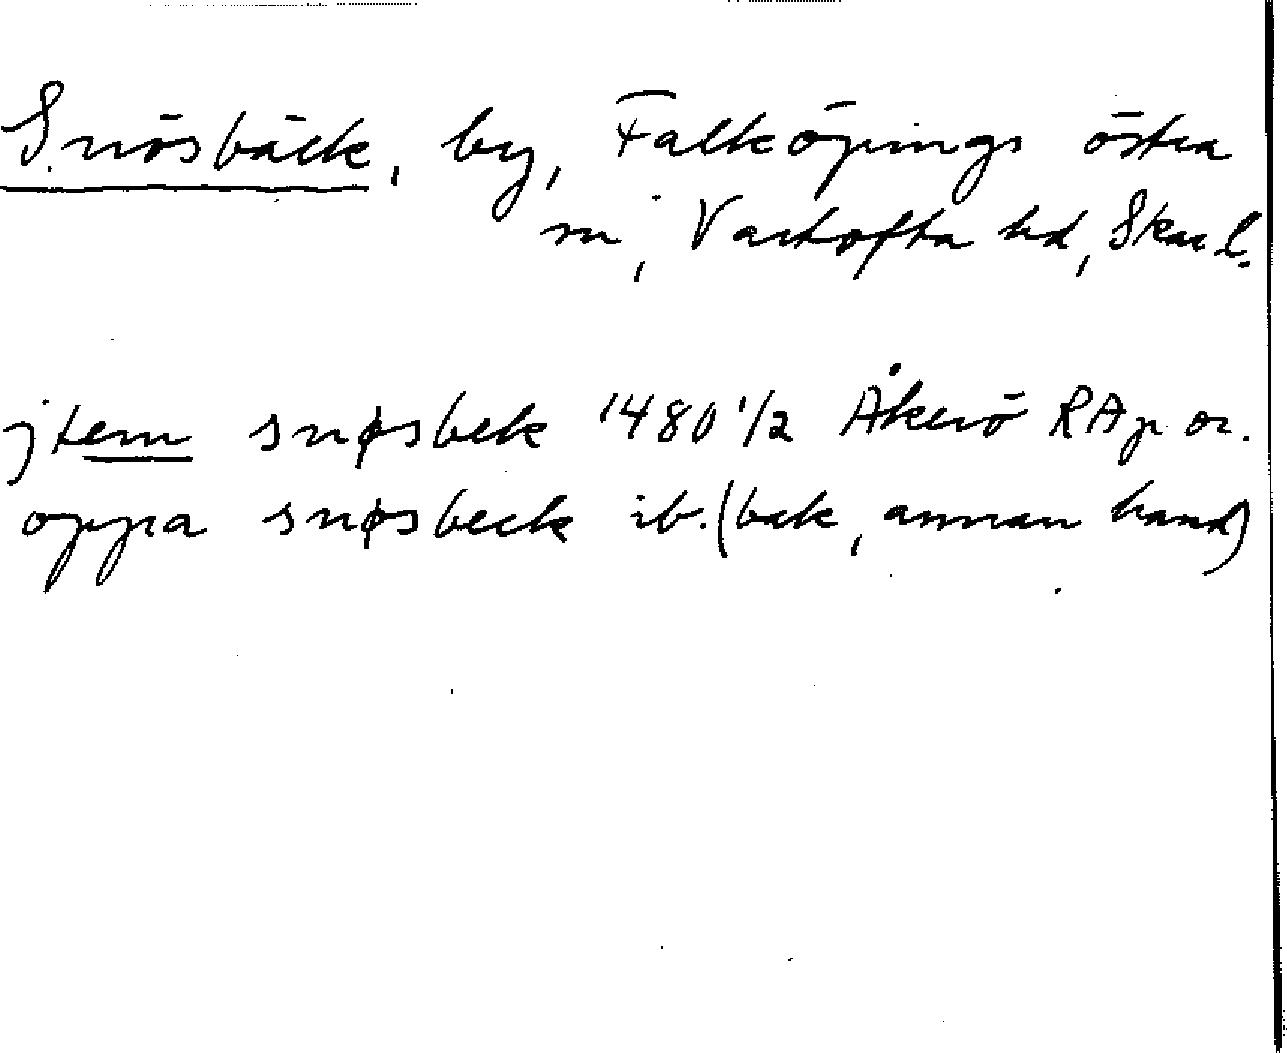 Snösbäck, by, Falköpings östra
sn, Vartofta hd, Skar l.
jtem snøsbek 1480 1/2 Åkerö RAp or.
oppa snøsbeck ib. (bak, annan hand)